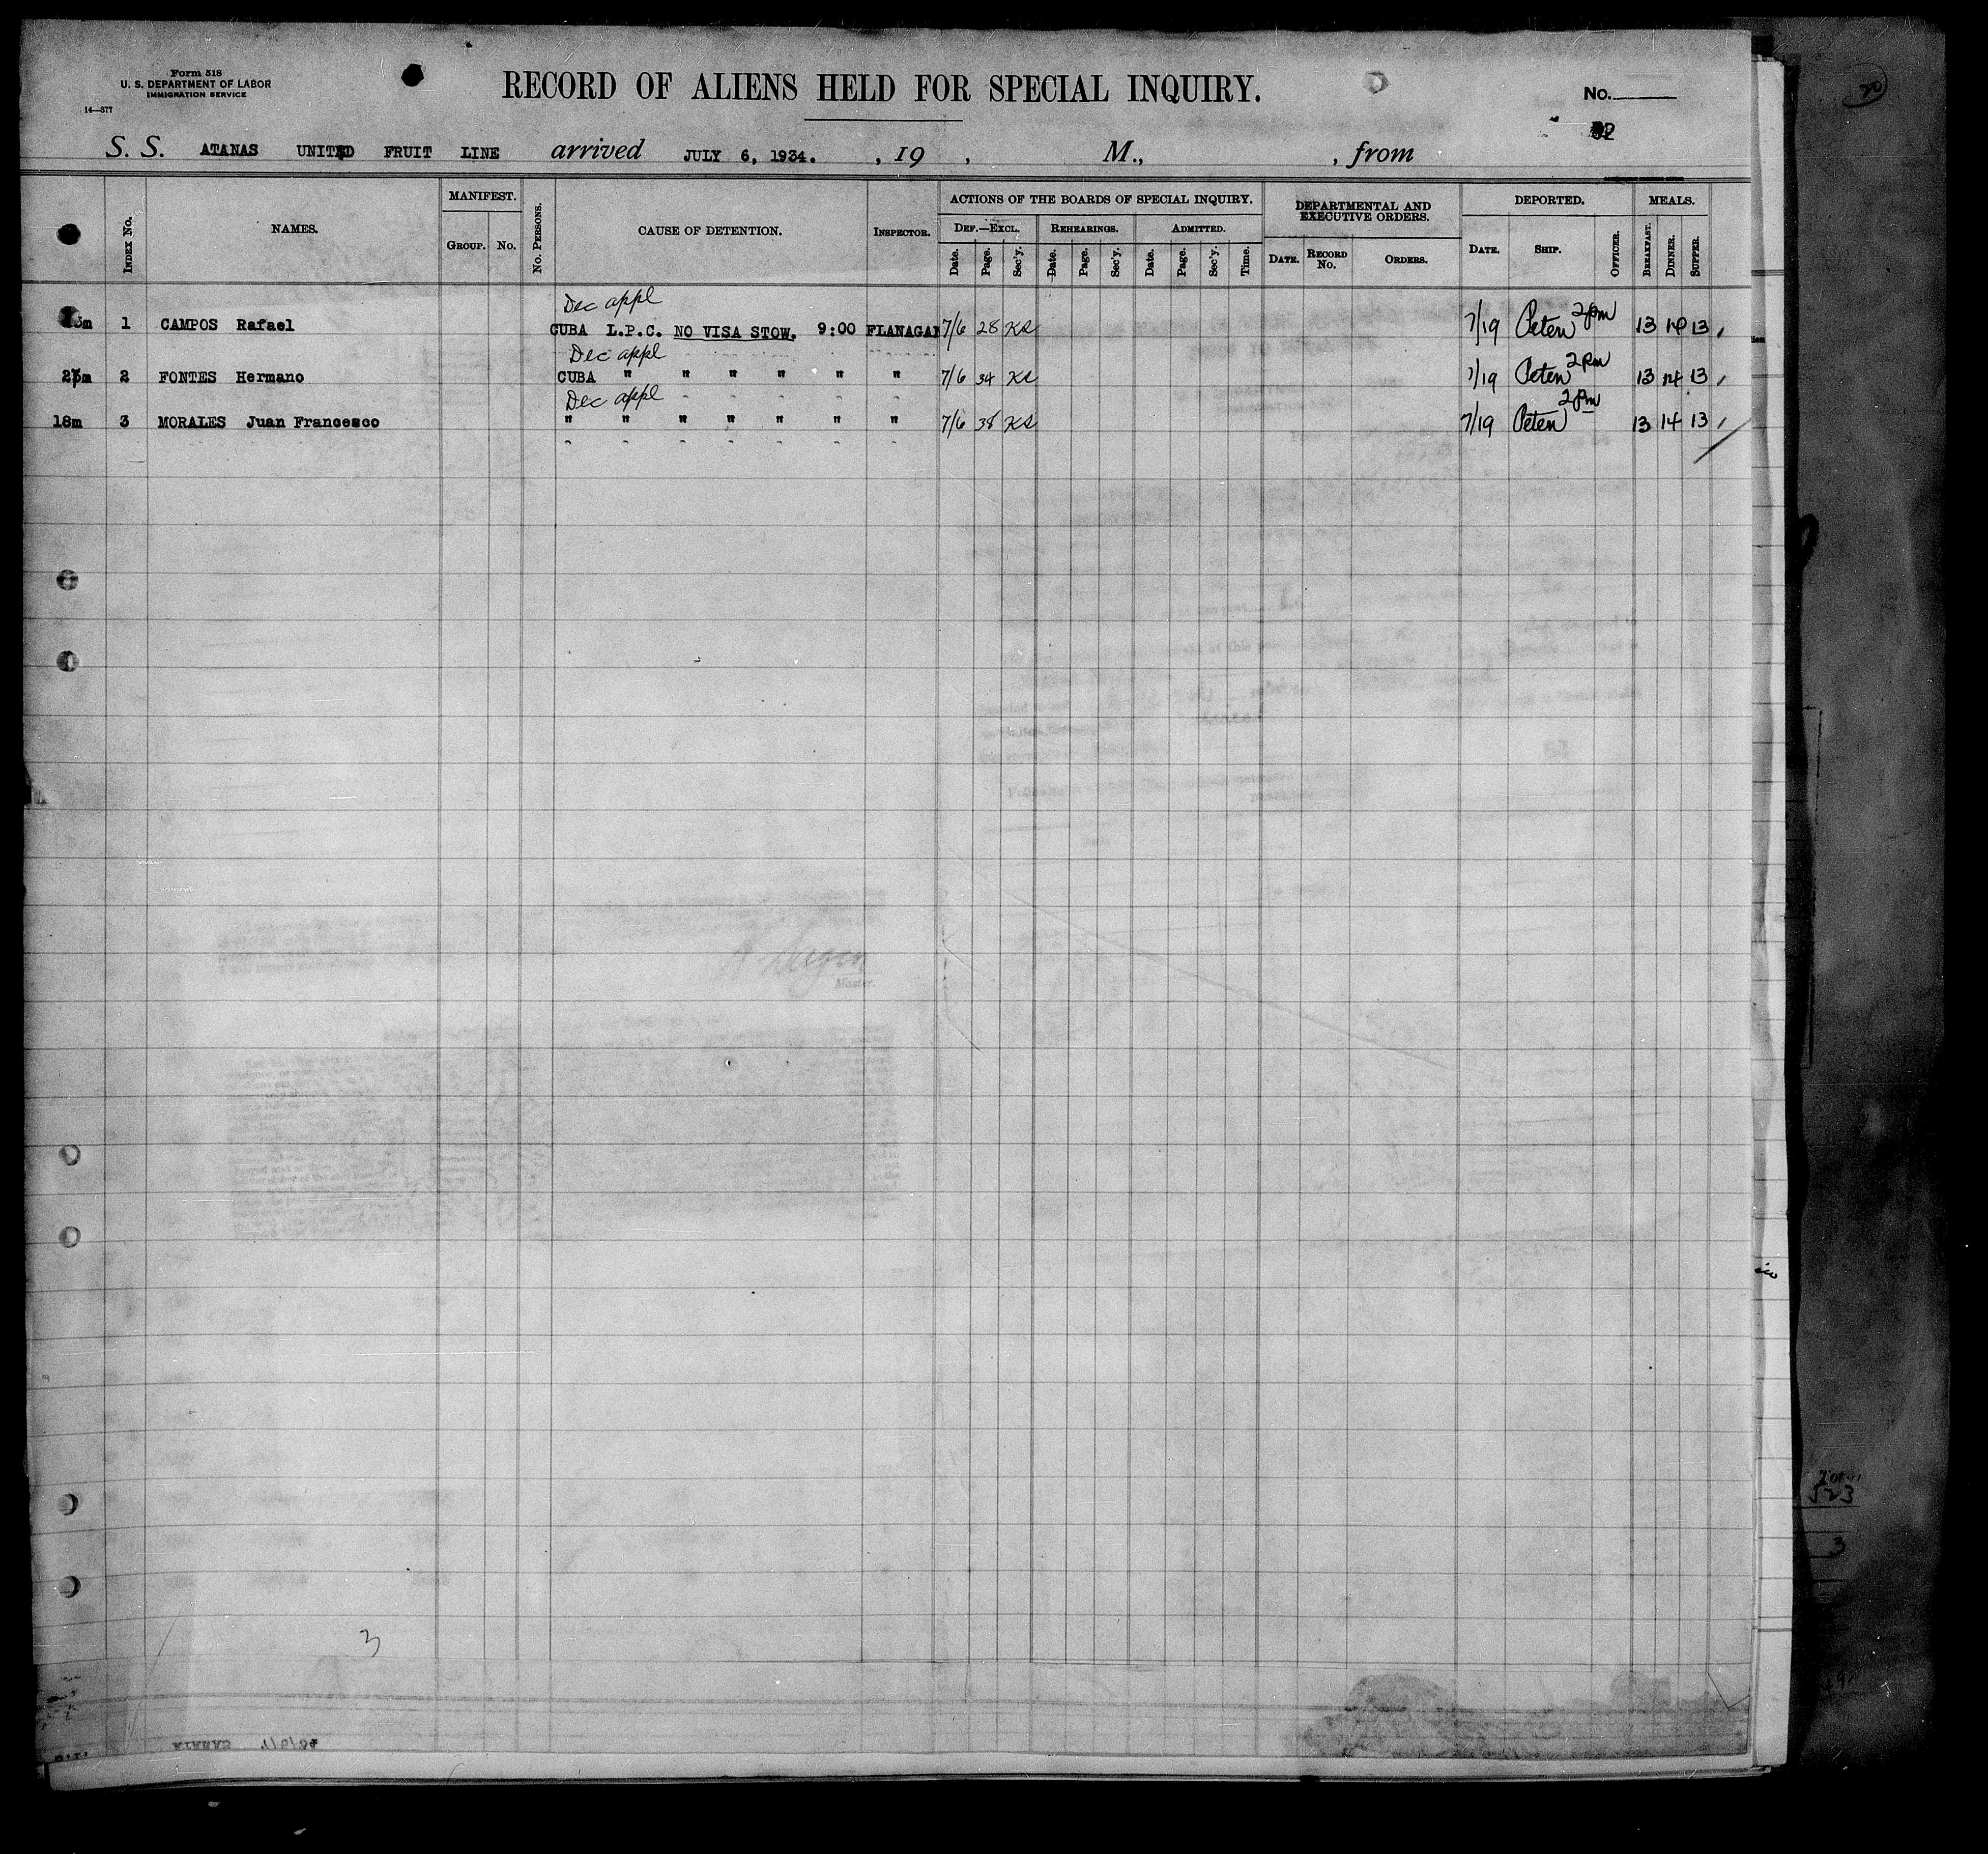 Form 518
U. S. DEPARTMENT OF LABOR
IMMIGRATION SERVICE
14—377
RECORD OF ALIENS HELD FOR SPECIAL INQUIRY.
No.
S. S. ATANAS UNITED FRUIT LINE arrived JULY 6, 1934. , 19 , M., , from
INDEX No. NAMES. MANIFEST. GROUP. No. No. PERSONS. CAUSE OF DETENTION. INSPECTOR. ACTIONS OF THE BOARDS OF SPECIAL INQUIRY. DEPARTMENTAL AND EXECUTIVE ORDERS. DEPORTED. MEALS.
DEF.—EXCL. REHEARINGS. ADMITTED.
Date. Page. Sec'y. Date. Page. Sec'y. Date. Page. Sec'y. Time. DATE. RECORD No. ORDERS. DATE. SHIP. OFFICER. BREAKFAST. DINNER. SUPPER.
Dec appl
1 CAMPOS Rafael CUBA L.P.C. NO VISA STOW. 9:00 FLANAGAN 7/6 28 KS 7/19 Peten 2pm 13 14 13
Dec appl
2 FONTES Hermano CUBA " " " " " " 7/6 34 KS 7/19 Peten 2Pm 13 14 13
Dec appl
18m 3 MORALES Juan Francesco " " " " " " " 7/6 38 KS 7/19 Peten 2Pm 13 14 13
Master.
3
523
3